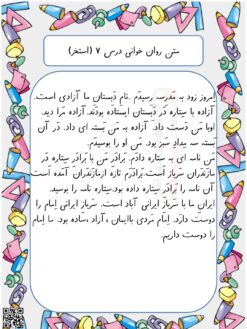 متن روان خوانی درس ۷ (استخر)
اِمروز زود به مَدرسه رسیدَم .نامِ دَبستان ما آزادی است.
آزاده با ستاره در دَبستان ایستاده بودَند.آزاده مَرا دید.
اوبا مَن دَست داد. آزاده به مَن بَسته ای داد. در آن
بَسته سه بیدارِ سَبز بود. مَن او را بوسیدَم.
مَن نامه ای به ستاره دادَم. بَرادَرِ مَن با بَرادَرِ ستاره دَر
مازَندَران سَرباز است.بَرادَرَم تازه ازمازَندَران آمَده است
آن نامه را بَرادَرِ ستاره داده بود.ستاره نامه را بوسید.
ایرانِ ما با سَربازِ ایرانی آباد است. سَربازِ ایرانی اِمام را
دوست دارَد. اِمام مَردی باایمان ،آزاد ،ساده بود. ما اِمام
را دوست داریم.